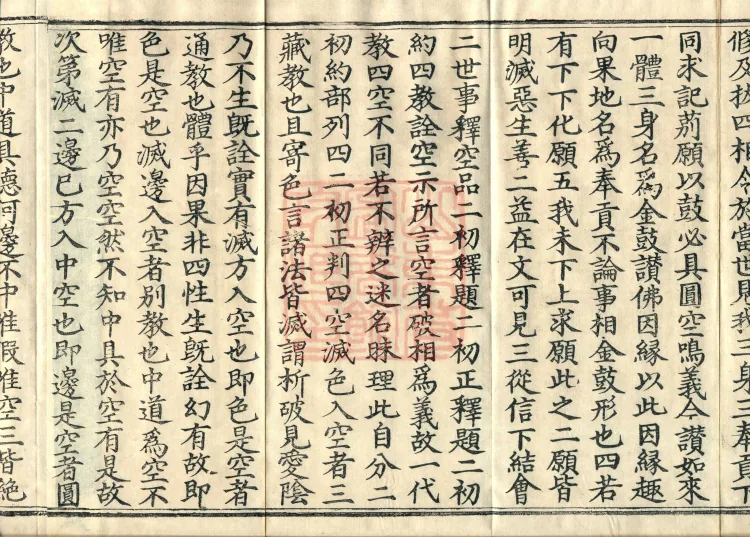 脩及於四相念於當世見我三身三奉貢下
同求記莂願以鼓必具圓空鳴義今讃如來
一體三身名爲金鼓讃佛因縁以此因縁趣
向果地名爲奉貢不論事相金鼓形也四若
有下下化願五我未下上求願此之二願皆
明滅惡生善二益在文可見三從信下結會
二世事釋空品二初釋題二初正釋題二初
約四教詮空示所言空者破相爲義故一代
教四空不同若不辨之迷名昧理此自分二
初約部列四二初正判四空滅色入空者三
藏教也且寄色言諸法皆滅謂析破見愛陰
乃不生旣詮實有滅方入空也即色是空者
通教也體乎因果非四性生旣詮幻有故即
色是空也滅邊入空者別教也中道爲空不
唯空有亦乃空空然不知中具於空有是故
次第滅二邊巳方入中空也即邊是空者圓
教也中道具德何邊不中唯假唯空三皆絶